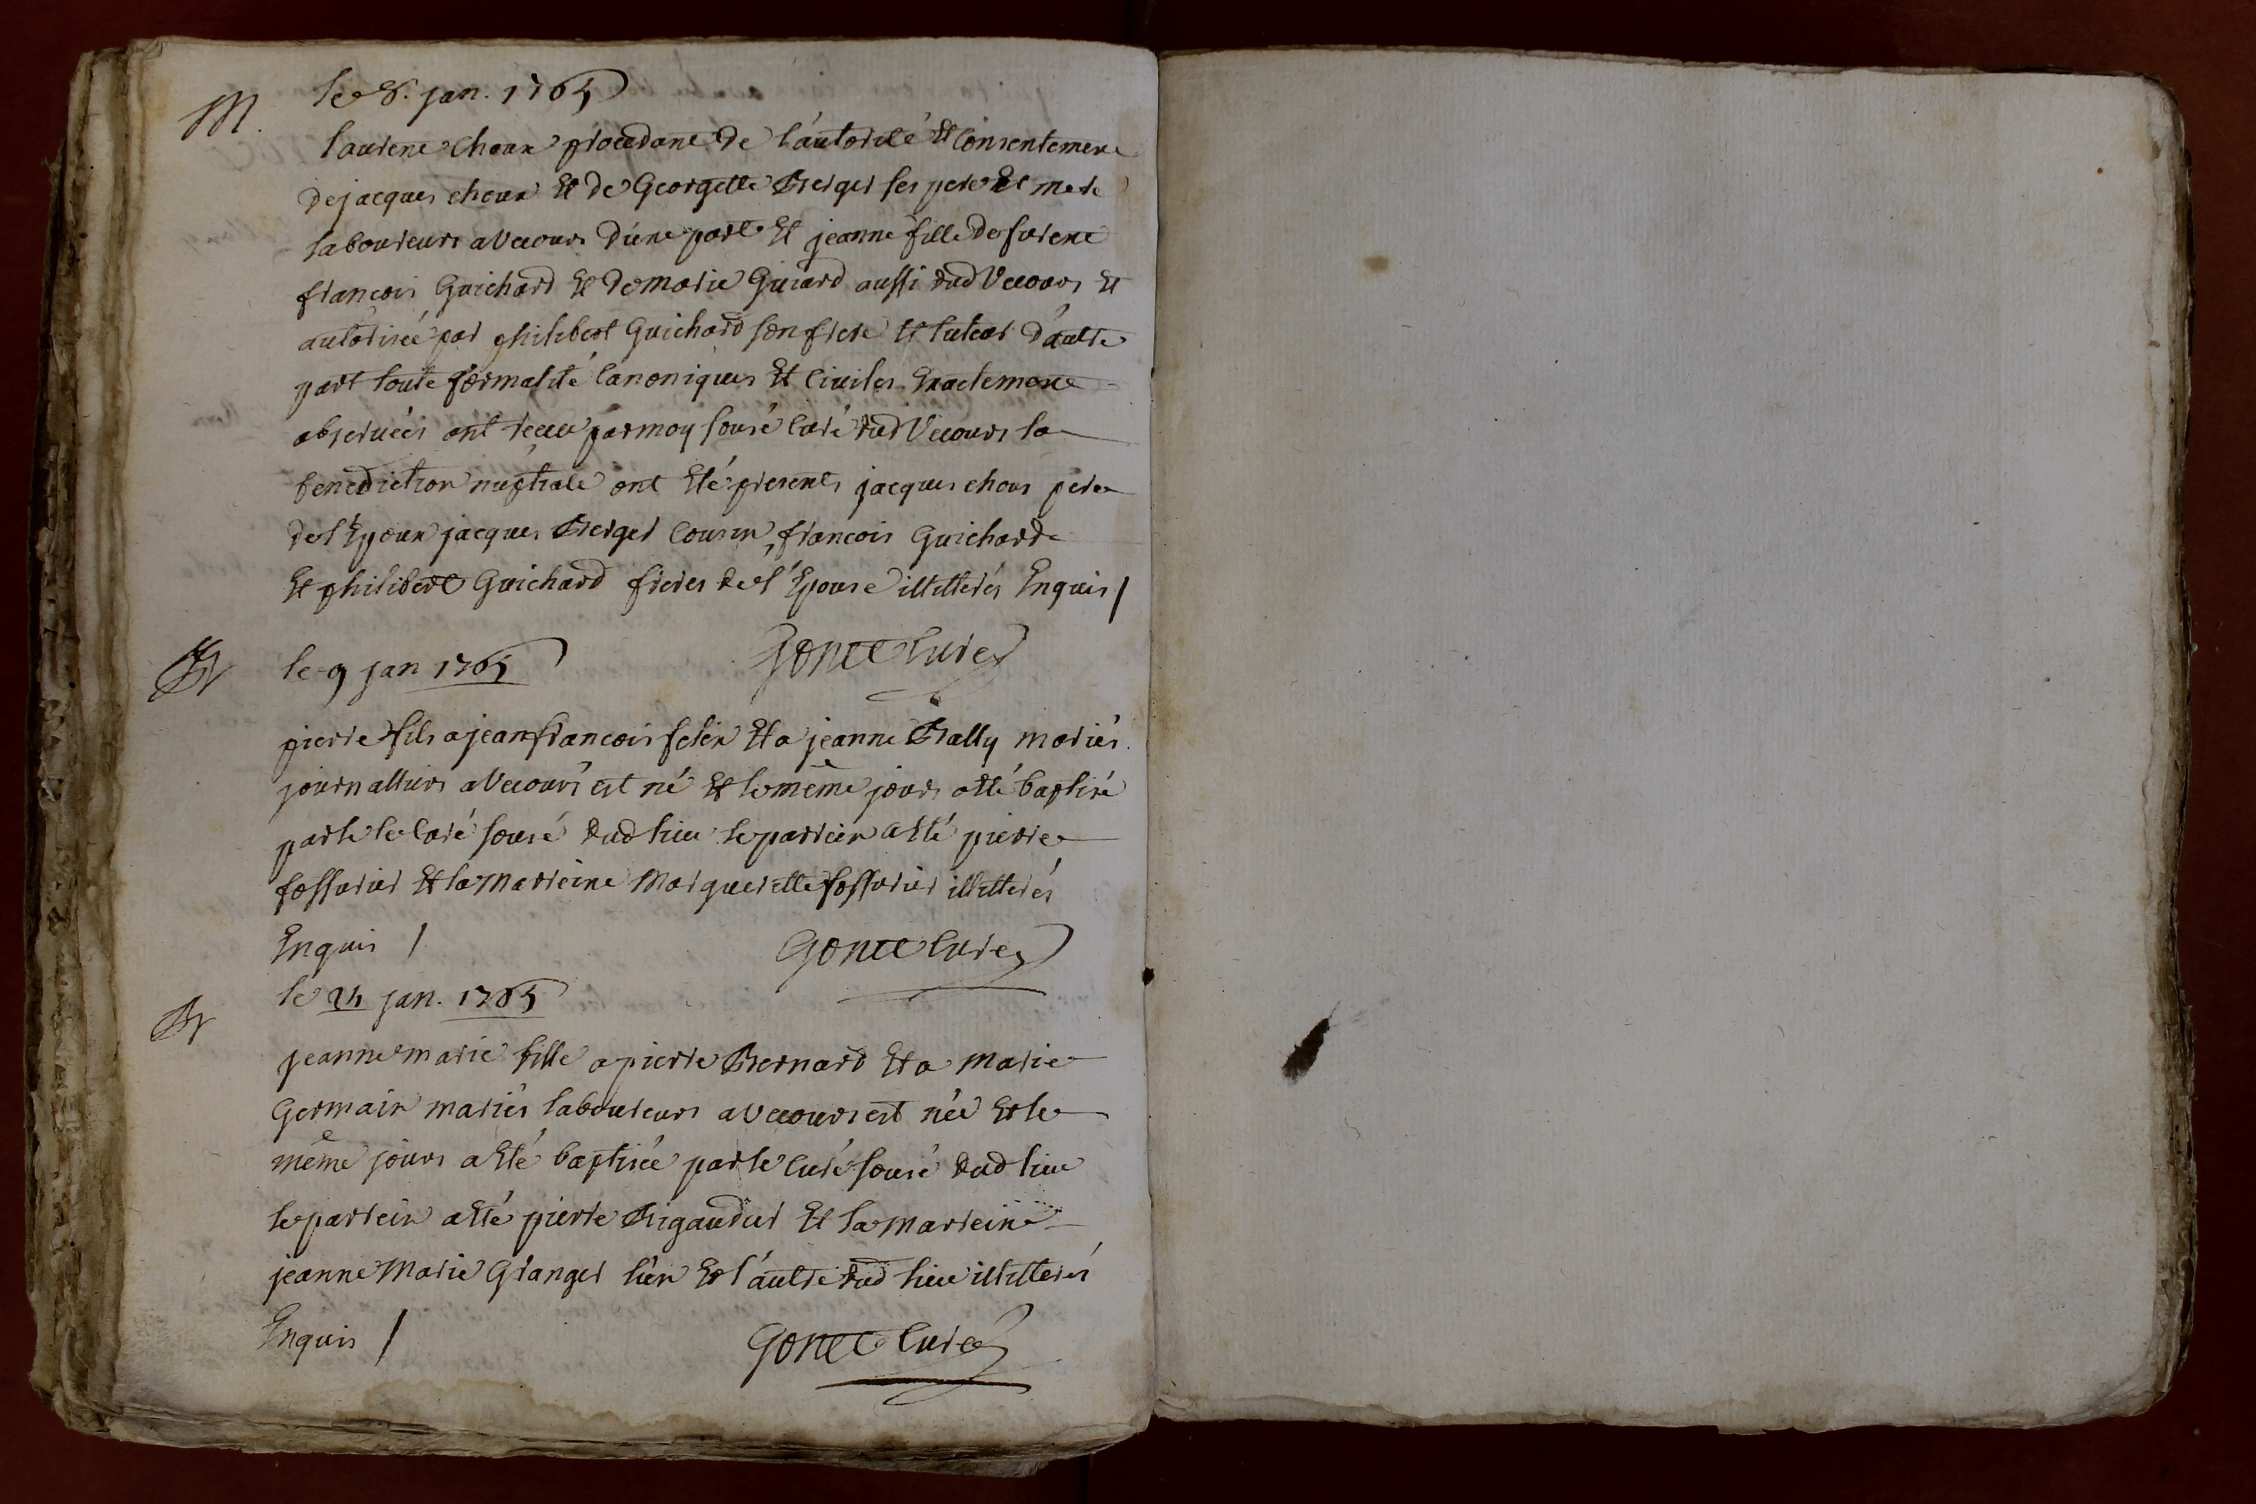 M. le 8. jan. 1765
laurent choux procedant de l'autorité Et consentement
de jacques choux Et de Georgette Berger ses pere Et mere
laboureurs a Vecours d'une part Et jeanne fille de furent
francois Guichard Et de marie Guiard aussi dud Vecours Et
autorisée par philibert Guichard son frere Et tuteur d'autre
part toute formalité canoniques Et civiles Exactement
observées ont receu par moy sousé curé dud Vecours la
benediction nuptiale ont Eté presents jacques choux pere
de l'Epoux jacques Berger cousin, francois Guichard
Et philibert Guichard freres de l'Epouse illitterés Enquis /
Gonet curé
B le 9 jan 1765
pierre fils a jean francois felix Et a jeanne Bally mariés
journalliers a Vecours est né Et le même jours a Eté baptisé
par le curé sousé dud lieu le parrein a Eté pierre
fossurier Et la Marreine Marguerette fossurier illitterés
Enquis / Gonet curé
B le 24 jan. 1765
jeanne marie fille a pierre Bernard Et a Marie
Germain mariés laboureurs a Vecours est née Et le
même jours a Eté baptisée par le curé sousé dud lieu
le parrein a Eté pierre Rigaudier Et la marreine
jeanne Marie Granger l'un Et l'autre dud lieu illitterés
Enquis / Gonet curé